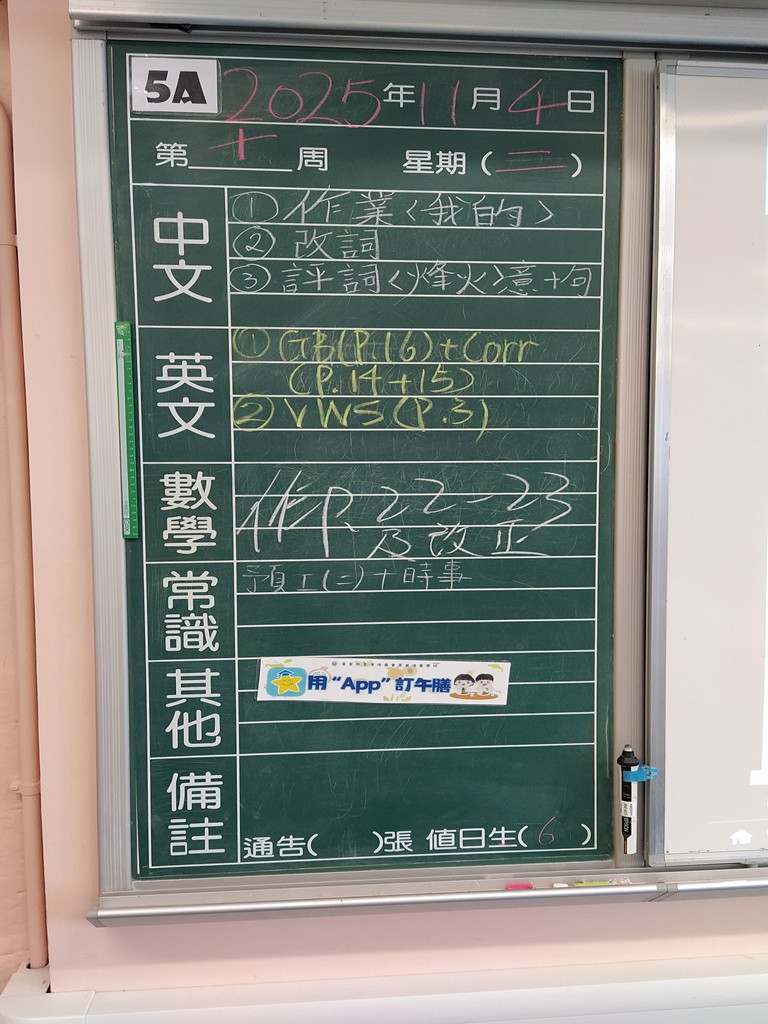 5A 2025年11月4日
第十周 星期(二)
中文
①作業<我的>
②改詞
③評詞<烽火>意+句
英文
①GB(P.16)+Corr
(P.14+15)
②VWS(P.3)
數學
作P.22-23
及改正
常識
預工(二)+時事
其他
用“App”訂午膳
備註
通告( )張 值日生(6)
EPSON